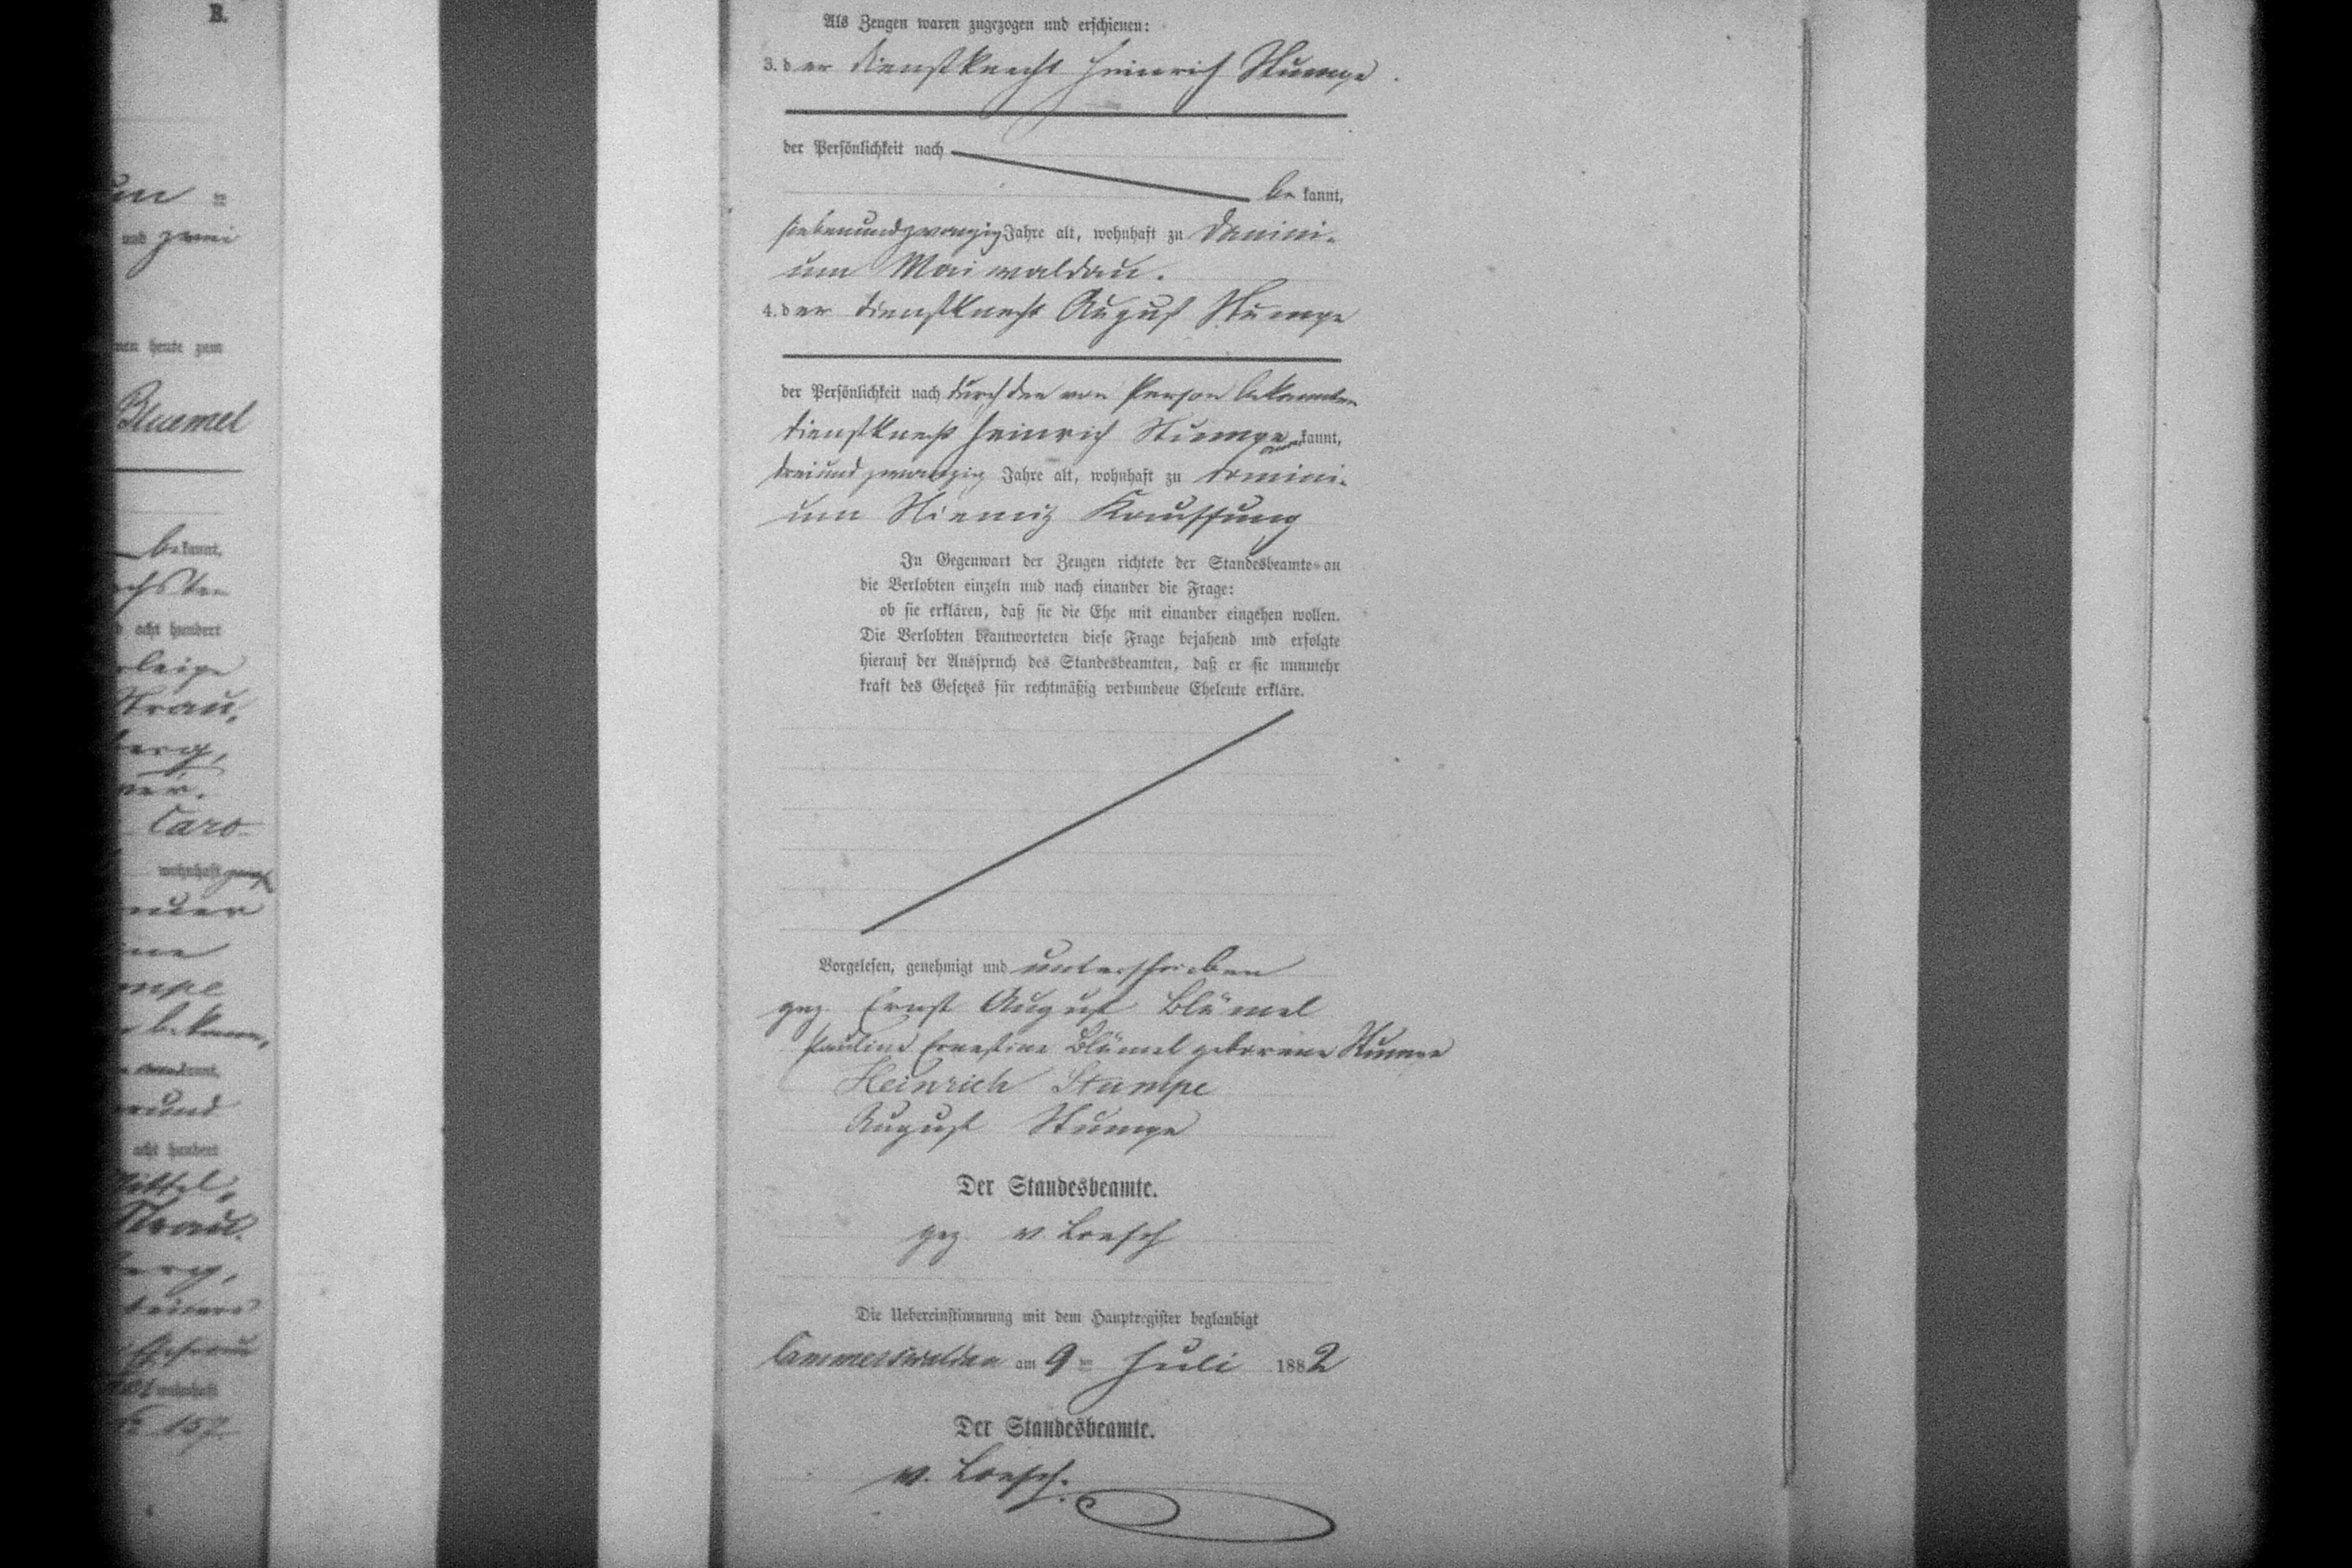 B.
und zwei
heute zum
Bluemel
bekannt,
acht hundert
Caro
wohnhaft
bekann,
acht hundert
wohnhaft
157.
Als Zeugen waren zugezogen und erschienen:
3. der Dienstknecht Heinrich Stumpe
der Persönlichkeit nach
bekannt,
siebenundzwanzig Jahre alt, wohnhaft zu Domini-
um Maiwaldau.
4. der Dienstknecht August Stumpe
der Persönlichkeit nach durch den von Person bekannten
Dienstknecht Heinrich Stumpe kannt,
dreiundzwanzig Jahre alt, wohnhaft zu Domini-
um Kauffung
In Gegenwart der Zeugen richtete der Standesbeamte an
die Verlobten einzeln und nach einander die Frage:
ob sie erklären, daß sie die Ehe mit einander eingehen wollen.
Die Verlobten beantworteten diese Frage bejahend und erfolgte
hierauf der Ausspruch des Standesbeamten, daß er sie nunmehr
kraft des Gesetzes für rechtmäßig verbundene Eheleute erkläre.
Vorgelesen, genehmigt und unterschrieben
gez. Ernst August Blümel
Pauline Ernestine Blümel geborene Stumpe
Heinrich Stumpe
August Stumpe
Der Standesbeamte.
gez. v. Loesch
Die Uebereinstimmung mit dem Hauptregister beglaubigt
Cammerswaldau am 9ten Juli 1882
Der Standesbeamte.
v. Loesch.